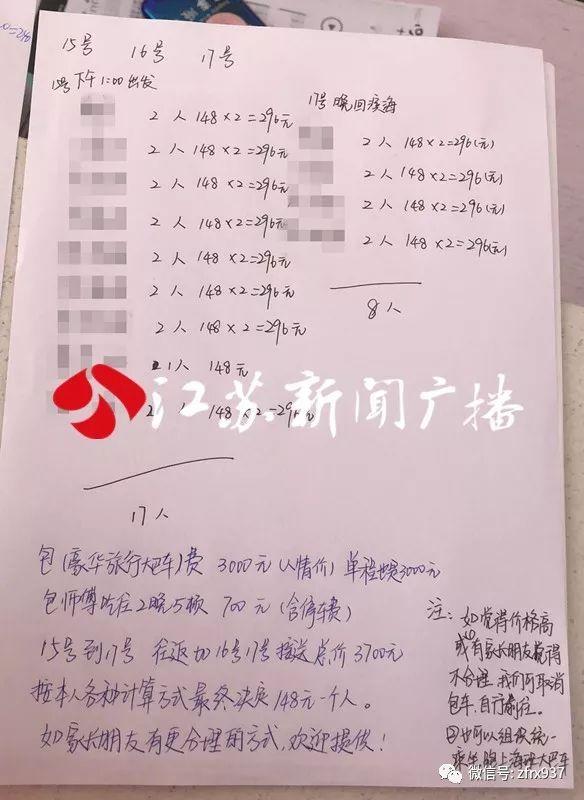 15号 16号 17号
15号下午1:00出发
2人 148×2=296元
2人 148×2=296元
2人 148×2=296元
2人 148×2=296元
2人 148×2=296元
2人 148×2=296元
2人 148×2=296元
1人 148元
2人 148×2=296元
17人
17号晚回
2人 148×2=296(元)
2人 148×2=296(元)
2人 148×2=296(元)
2人 148×2=296(元)
8人
江苏新闻广播
包(豪华旅行大巴车)费 3000元(人情价) 单程也要3000元
包师傅吃住2晚5顿 700元(含停车费)
15号到17号 往返加16号17号接送总价3700元
按本人各种计算方式最终决定148元一个人。
如家长朋友有更合理的方式,欢迎提供!
注:如觉得价格高
或有家长朋友觉得
不合理,我们可取消
包车,自行前往。
也可以组织统一
乘坐 上海 大巴车
微信号: zfrx937